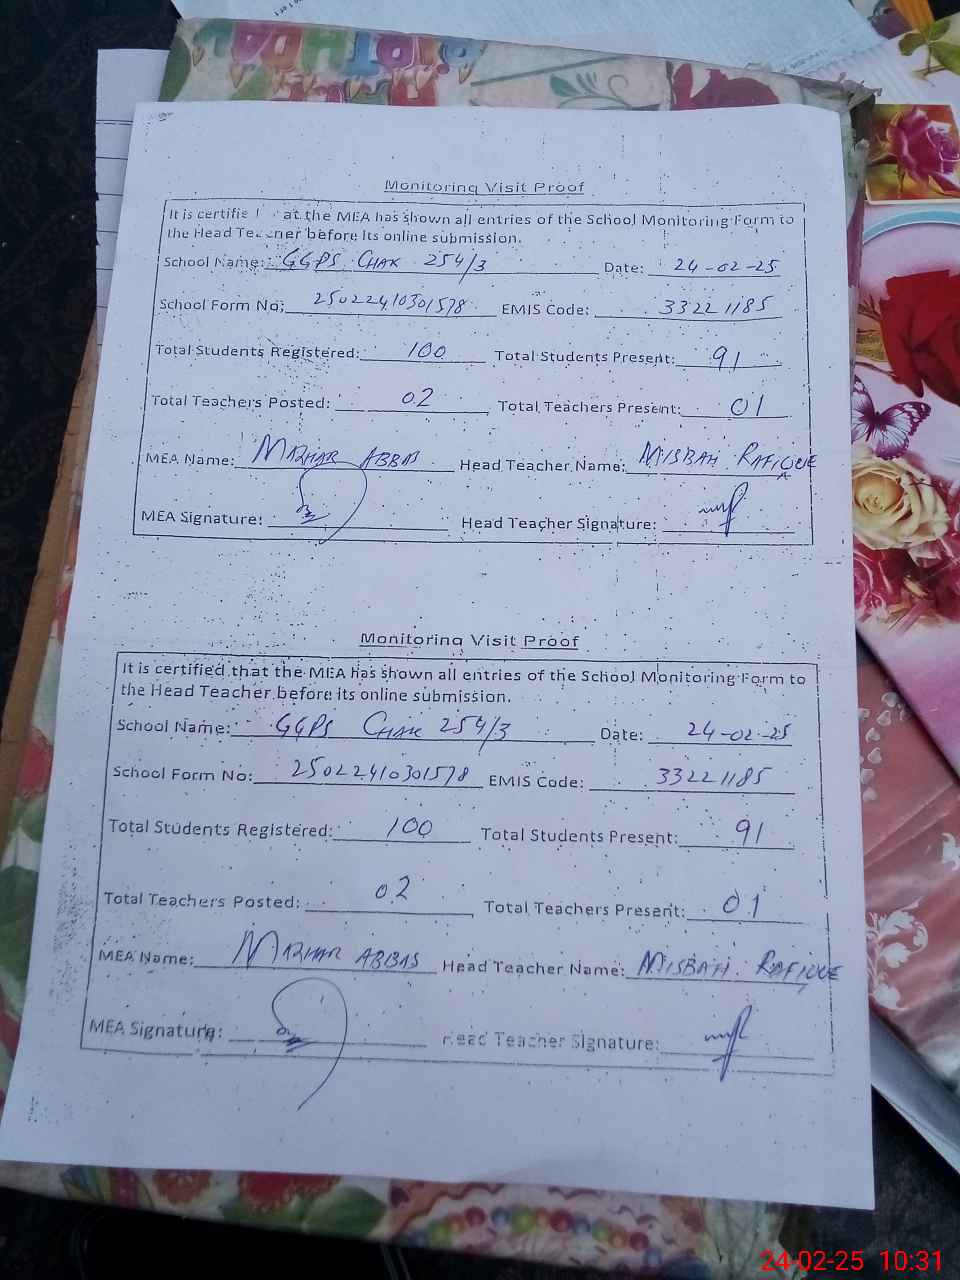 Monitoring Visit Proof
It is certifie at the MEA has shown all entries of the School Monitoring Form to
the Head Teacher before its online submission.
School Name: GGPS CHAK 254/3 Date: 24-02-25
School Form No: 25022410301578 EMIS Code: 33221185
Total Students Registered: 100 Total Students Present: 91
Total Teachers Posted: 02 Total Teachers Present: 01
MEA Name: MAZHAR ABBAS Head Teacher Name: MISBAH RAFIQUE
MEA Signature: Head Teacher Signature:
Monitoring Visit Proof
It is certified that the MEA has shown all entries of the School Monitoring Form to
the Head Teacher before its online submission.
School Name: GGPS CHAK 254/3 Date: 24-02-25
School Form No: 25022410301578 EMIS Code: 33221185
Total Students Registered: 100 Total Students Present: 91
Total Teachers Posted: 02 Total Teachers Present: 01
MEA Name: MAZHAR ABBAS Head Teacher Name: MISBAH RAFIQUE
MEA Signature: Head Teacher Signature:
24-02-25 10:31